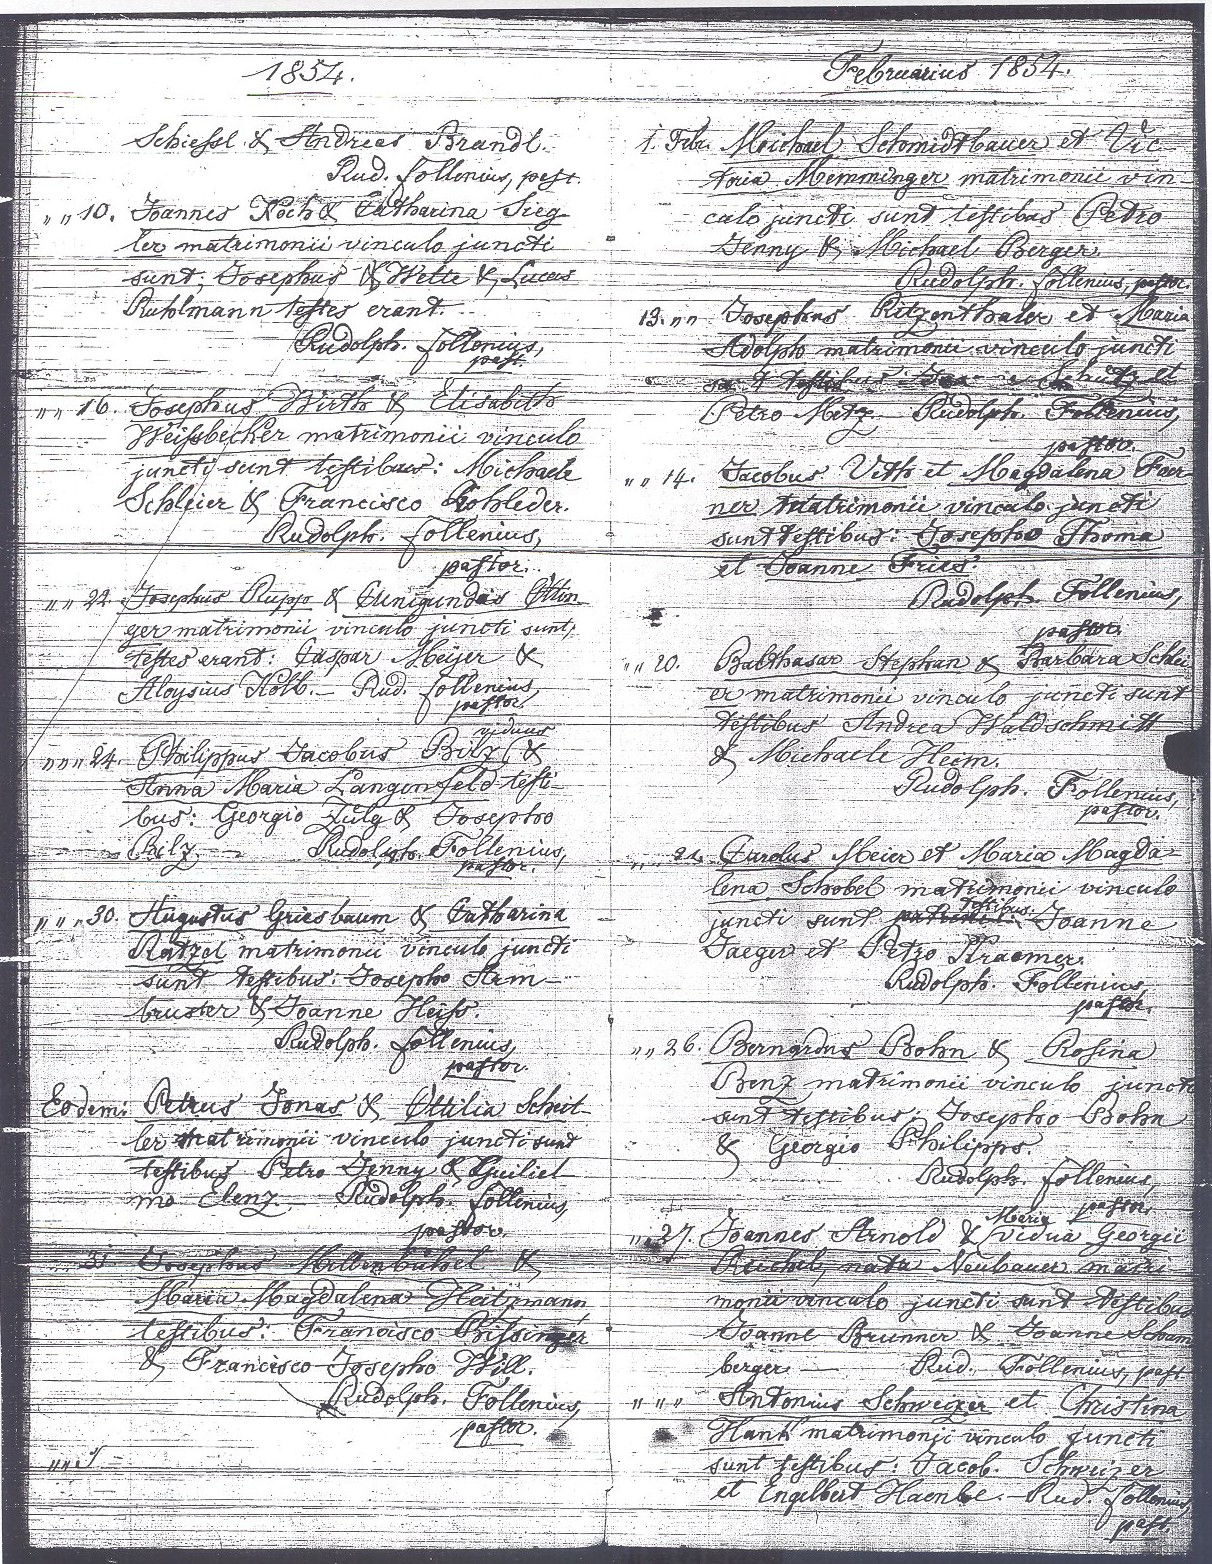 1854.
Schiessl & Andreas Brandl.
Rud. Follenius, past.
" " 10. Joannes Koch & Catharina Sieg-
ler matrimonii vinculo juncti
sunt; Josephus & Wette & Lucas
Ruhlmann testes erant.
Rudolph. Follenius,
past.
" " 16. Josephus Wirth & Elisabeth
Weissbecher matrimonii vinculo
juncti sunt testibus: Michaele
Schleier & Francisco Kohleder.
Rudolph. Follenius,
pastor.
" " 22. Josephus Rupp & Cunigundas Ottin
ger matrimonii vinculo juncti sunt,
testes erant: Caspar Meijer &
Aloysius Kolb. — Rud. Follenius,
pastor.
viduus
" " " 24. Philippus Jacobus Bilz &
Anna Maria Langenfeld testi-
bus: Georgio Zulg & Josepho
Bilz. — Rudolph. Follenius,
pastor.
" " " 30. Augustus Griesbaum & Catharina
Ratzel matrimonii vinculo juncti
sunt testibus: Josepho Arm-
bruster & Joanne Heiss.
Rudolph. Follenius,
pastor.
Eodem: Petrus Jonas & Ottilia Schit-
ler matrimonii vinculo juncti sunt
testibus Petro Jenny & Guiliel
mo Elenz. Rudolph. Follenius,
pastor.
" " 31 Josephus Millenbuhel &
Maria Magdalena Heitzmann
testibus: Francisco Prissinger
& Francisco Josepho Will.
Rudolph. Follenius,
pastor.
" " "
Februarius 1854.
1. Febr. Michael Schmidtbauer et Vic-
toria Memminger matrimonii vin
culo juncti sunt testibus Petro
Jenny & Michael Berger
Rudolph. Follenius, pastor.
13. " " Josephus Ritzenthaler et Maria
Adolph matrimonii vinculo juncti
testibus Schütz et
Petro Metz. Rudolph. Follenius,
pastor.
" " 14. Jacobus Vith et Magdalena Foer
ner matrimonii vinculo juncti
sunt testibus: Josepho Thoma
et Joanne Fries.
Rudolph Follenius,
pastor.
" " 20. Balthasar Stephan & Barbara Schlei
er matrimonii vinculo juncti sunt
testibus Andrea Waldschmitt
& Michaele Heim.
Rudolph. Follenius,
pastor.
" " 21. Carolus Meier et Maria Magda-
lena Schobel matrimonii vinculo
testibus
juncti sunt Joanne
Jaeger et Petro Kraemer.
Rudolph. Follenius,
pastor.
" " 26. Bernardus Bohn & Rosina
Benz matrimonii vinculo juncti
sunt testibus: Josepho Bohn
& Georgio Philipps.
Rudolph. Follenius,
pastor.
Maria
" " 27. Joannes Arnold & vidua Georgii
Reichel, nata Neubauer matri
monii vinculo juncti sunt testibus
Joanne Brunner & Joanne Scham
berger — Rud. Follenius, past.
" " " Antonius Schweizer et Christina
Hank matrimonii vinculo juncti
sunt testibus: Jacob. Schweizer
et Engelbert Haenle. — Rud. Follenius,
past.